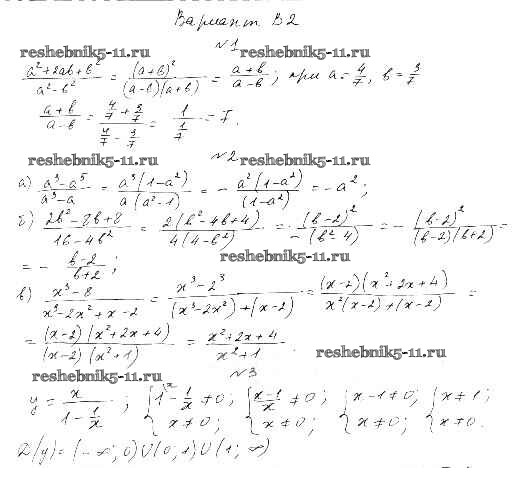 Вариант В2
reshebnik5-11.ru №1 reshebnik5-11.ru
(a²+2ab+b²)/(a²-b²) = (a+b)²/((a-b)(a+b)) = (a+b)/(a-b); при a=4/7, b=3/7
(a+b)/(a-b) = (4/7+3/7)/(4/7-3/7) = 1/(1/7) = 7.
reshebnik5-11.ru №2 reshebnik5-11.ru
а) (a³-a⁵)/(a³-a) = a³(1-a²)/(a(a²-1)) = -a²(1-a²)/(1-a²) = -a²;
б) (2b²-8b+8)/(16-4b²) = 2(b²-4b+4)/(4(4-b²)) = (b-2)²/-(b²-4) = -(b-2)²/((b-2)(b+2)) =
reshebnik5-11.ru
= -(b-2)/(b+2);
в) (x³-8)/(x³-2x²+x-2) = (x³-2³)/((x³-2x²)+(x-2)) = (x-2)(x²+2x+4)/(x²(x-2)+(x-2)) =
= (x-2)(x²+2x+4)/((x-2)(x²+1)) = (x²+2x+4)/(x²+1).
reshebnik5-11.ru
reshebnik5-11.ru №3
y = x/(1-1/x); {1-1/x≠0; x≠0; {(x-1)/x≠0; x≠0; {x-1≠0; x≠0; {x≠1; x≠0.
D(y)=(-∞;0)U(0;1)U(1;∞)